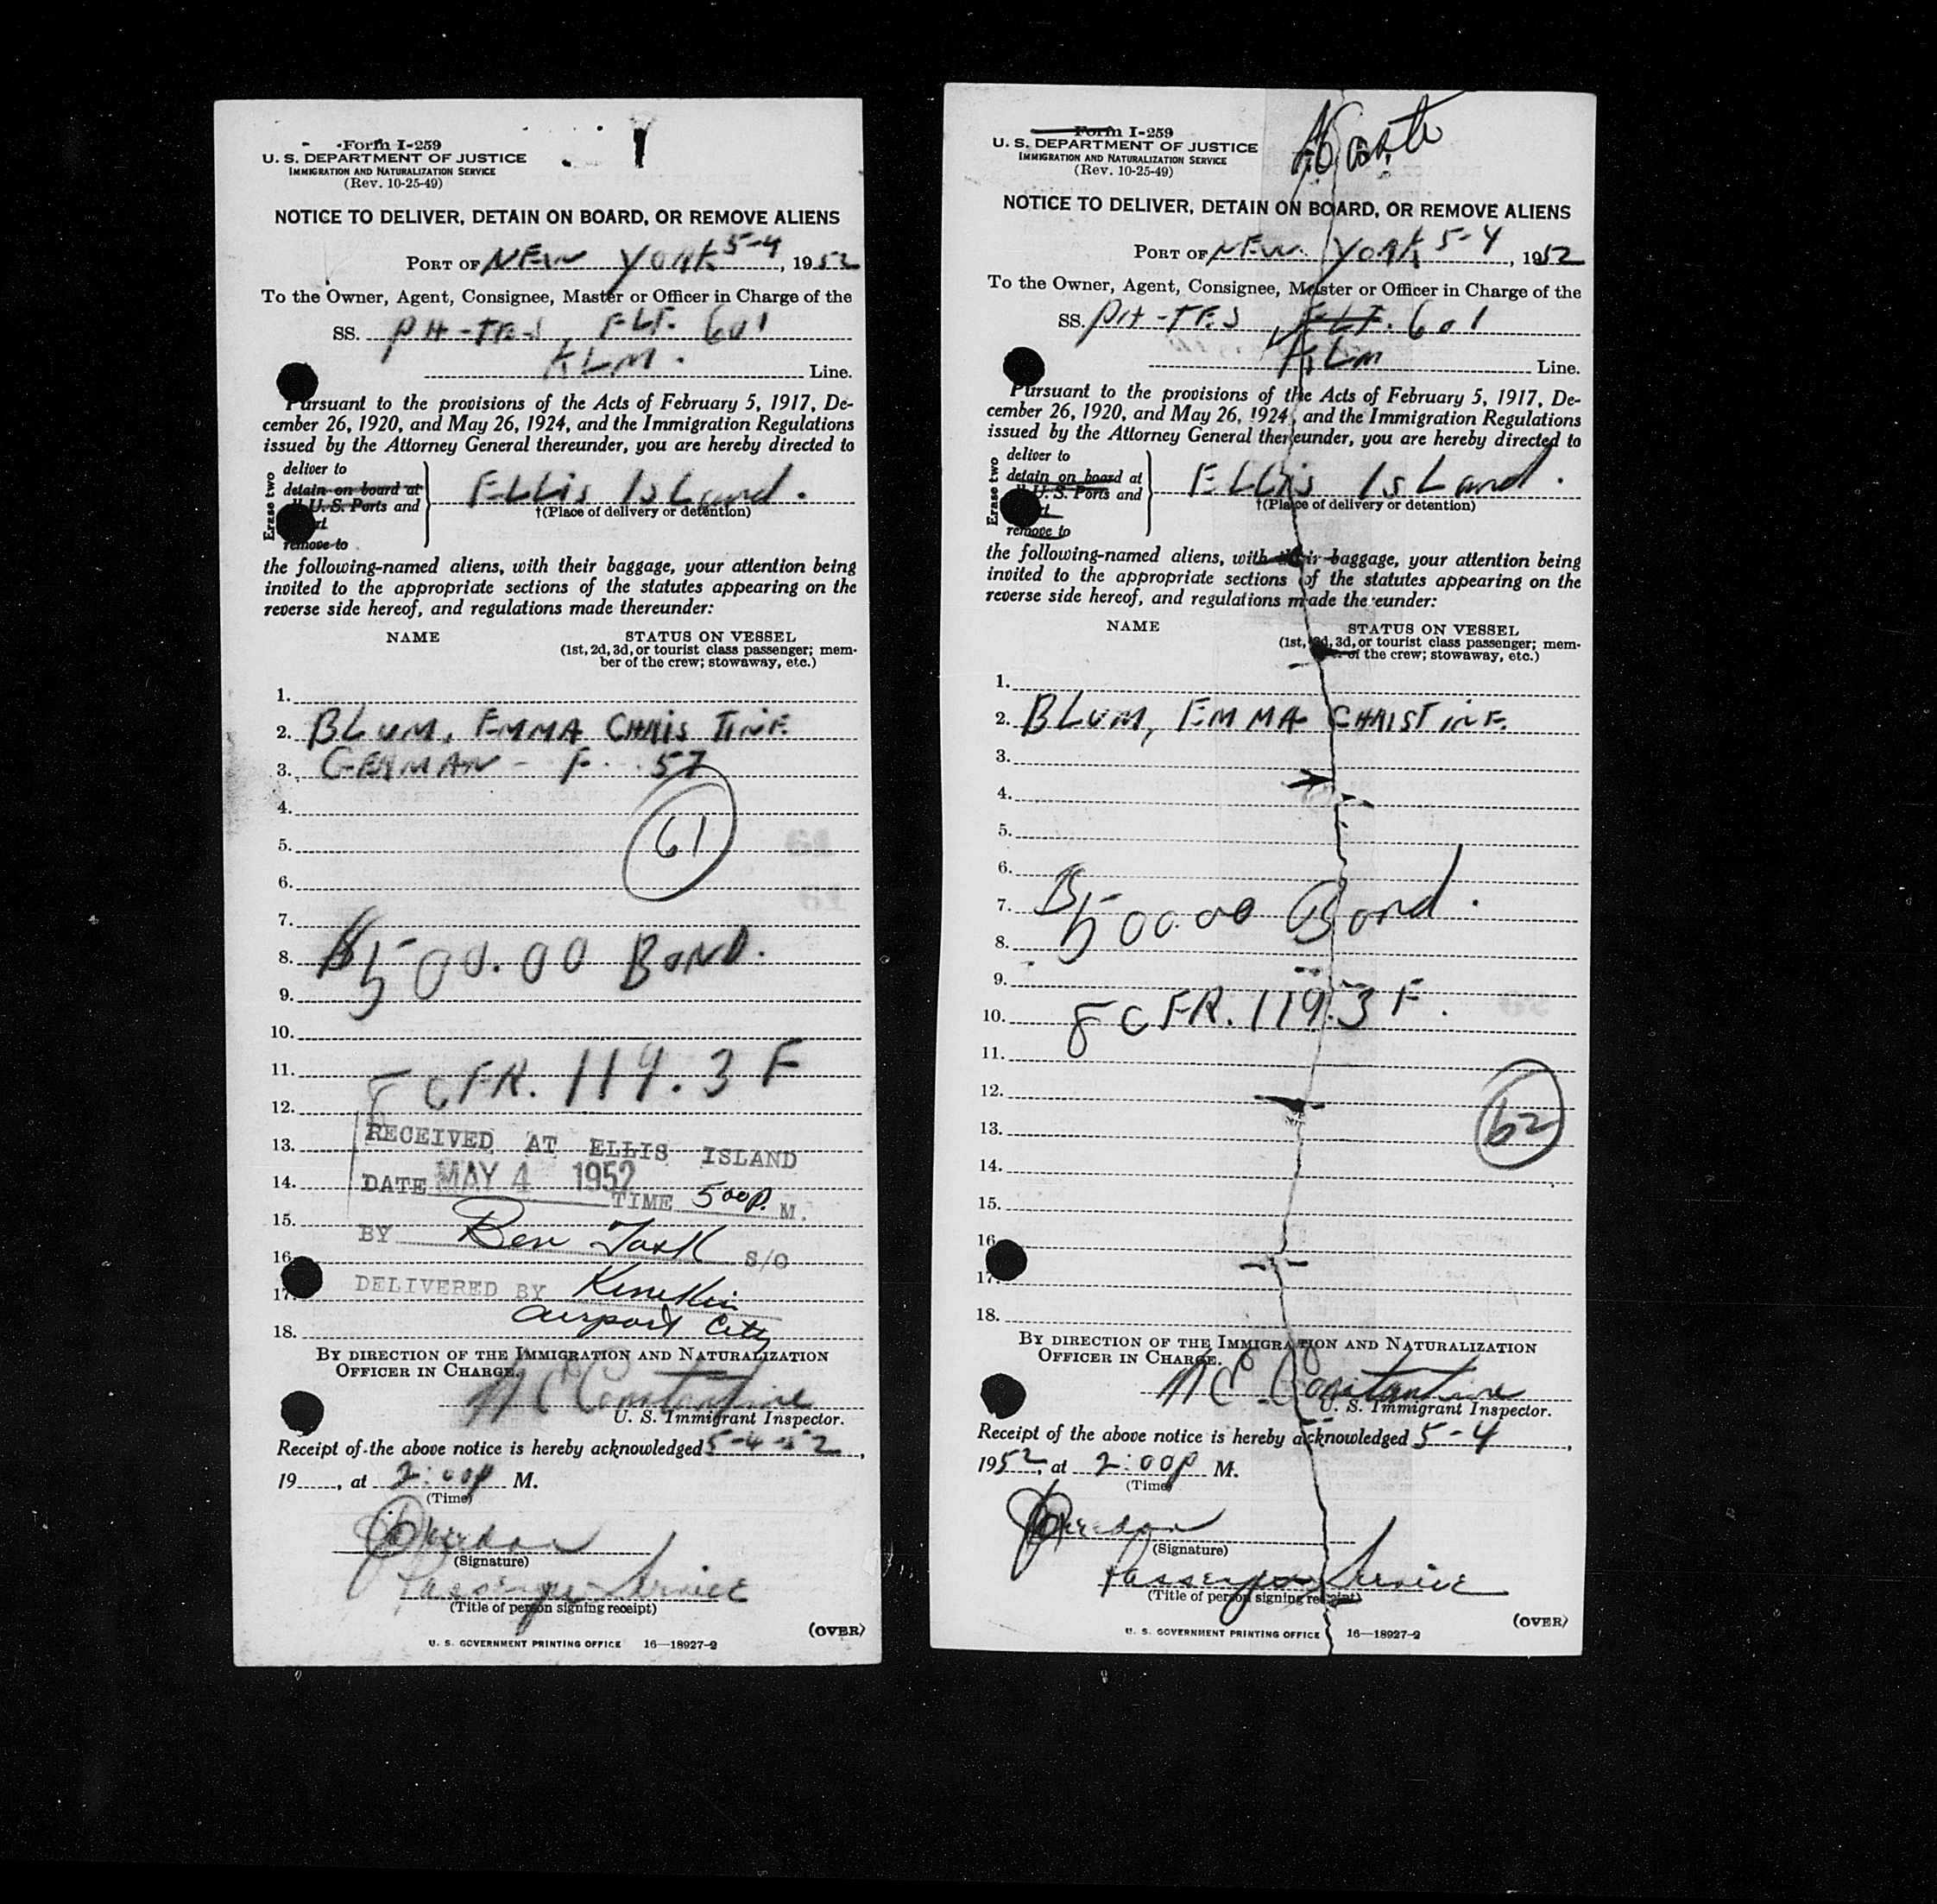 Form I-259
U. S. DEPARTMENT OF JUSTICE
IMMIGRATION AND NATURALIZATION SERVICE
(Rev. 10-25-49)
NOTICE TO DELIVER, DETAIN ON BOARD, OR REMOVE ALIENS
PORT OF NEW YORK 5-4, 1952
To the Owner, Agent, Consignee, Master or Officer in Charge of the
SS. PH-TES FLT. 601
KLM. Line.
Pursuant to the provisions of the Acts of February 5, 1917, De-
cember 26, 1920, and May 26, 1924, and the Immigration Regulations
issued by the Attorney General thereunder, you are hereby directed to
Erase two
deliver to
detain on board at
U. S. Ports and
remove to
ELLis IsLand.
†(Place of delivery or detention)
the following-named aliens, with their baggage, your attention being
invited to the appropriate sections of the statutes appearing on the
reverse side hereof, and regulations made thereunder:
NAME STATUS ON VESSEL
(1st, 2d, 3d, or tourist class passenger; mem-
ber of the crew; stowaway, etc.)
1.
2. BLUM, EMMA CHRISTINE
3. GERMAN - F. 57
4.
61
5.
6.
7.
8. $500.00 BOND.
9.
10.
11. 8 CFR. 119.3 F
12.
13. RECEIVED AT ELLIS ISLAND
14. DATE MAY 4 1952 TIME 5 00 P. M.
15.
BY Ben S/O
16.
17. DELIVERED BY
airport City
18.
BY DIRECTION OF THE IMMIGRATION AND NATURALIZATION
OFFICER IN CHARGE.
N C Constantine
U. S. Immigrant Inspector.
Receipt of the above notice is hereby acknowledged 5-4-52,
19, at 2:00 P M.
(Time)
(Signature)
Passenger Service
(Title of person signing receipt)
(OVER)
U. S. GOVERNMENT PRINTING OFFICE 16—18927-2
Form I-259
U. S. DEPARTMENT OF JUSTICE
IMMIGRATION AND NATURALIZATION SERVICE
(Rev. 10-25-49)
NOTICE TO DELIVER, DETAIN ON BOARD, OR REMOVE ALIENS
PORT OF NEW YORK 5-4, 1952
To the Owner, Agent, Consignee, Master or Officer in Charge of the
SS. PH-TES FLT. 601
KLM Line.
Pursuant to the provisions of the Acts of February 5, 1917, De-
cember 26, 1920, and May 26, 1924, and the Immigration Regulations
issued by the Attorney General thereunder, you are hereby directed to
Erase two
deliver to
detain on board at
U. S. Ports and
remove to
ELLis IsLand.
†(Place of delivery or detention)
the following-named aliens, with their baggage, your attention being
invited to the appropriate sections of the statutes appearing on the
reverse side hereof, and regulations made thereunder:
NAME STATUS ON VESSEL
(1st, 2d, 3d, or tourist class passenger; mem-
of the crew; stowaway, etc.)
1.
2. BLUM, EMMA CHRISTINE.
3.
4.
5.
6.
7. $500.00 Bond.
8.
9.
10. 8 CFR. 119.3 F.
11.
12.
62
13.
14.
15.
16.
17.
18.
BY DIRECTION OF THE IMMIGRATION AND NATURALIZATION
OFFICER IN CHARGE.
N C Constantine
U. S. Immigrant Inspector.
Receipt of the above notice is hereby acknowledged 5-4,
1952, at 2:00 P M.
(Time)
(Signature)
Passenger Service
(Title of person signing receipt)
(OVER)
U. S. GOVERNMENT PRINTING OFFICE 16—18927-2